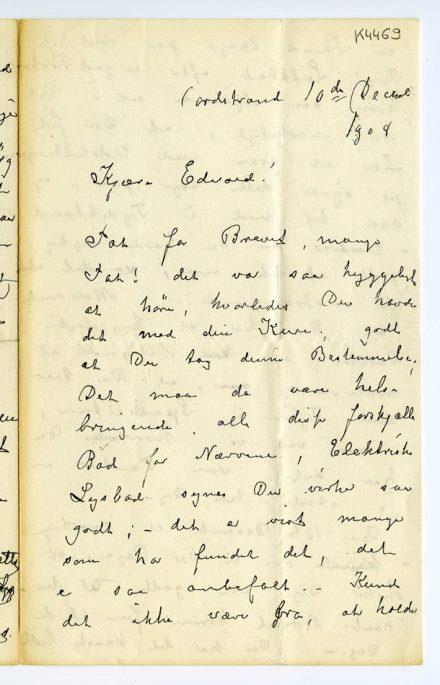 K4469
Nordstrand 10de Decemb
1908
Kjære Edvard!
Tak for Brevet, mange
Tak! det var saa hyggeligt
at höre, hvorledes Du havde
det med din Kur; godt
at Du tog denne Bestemmelse,
Det maa da være hels-
bringende alle disse forskjelle
Bad for Nerverne, Elektriske
Lysbad synes Du virke saa
godt; – det er vist mange
som ha fundet det, det
e saa anbefalt. – Kunde
det ikke være bra, at holde